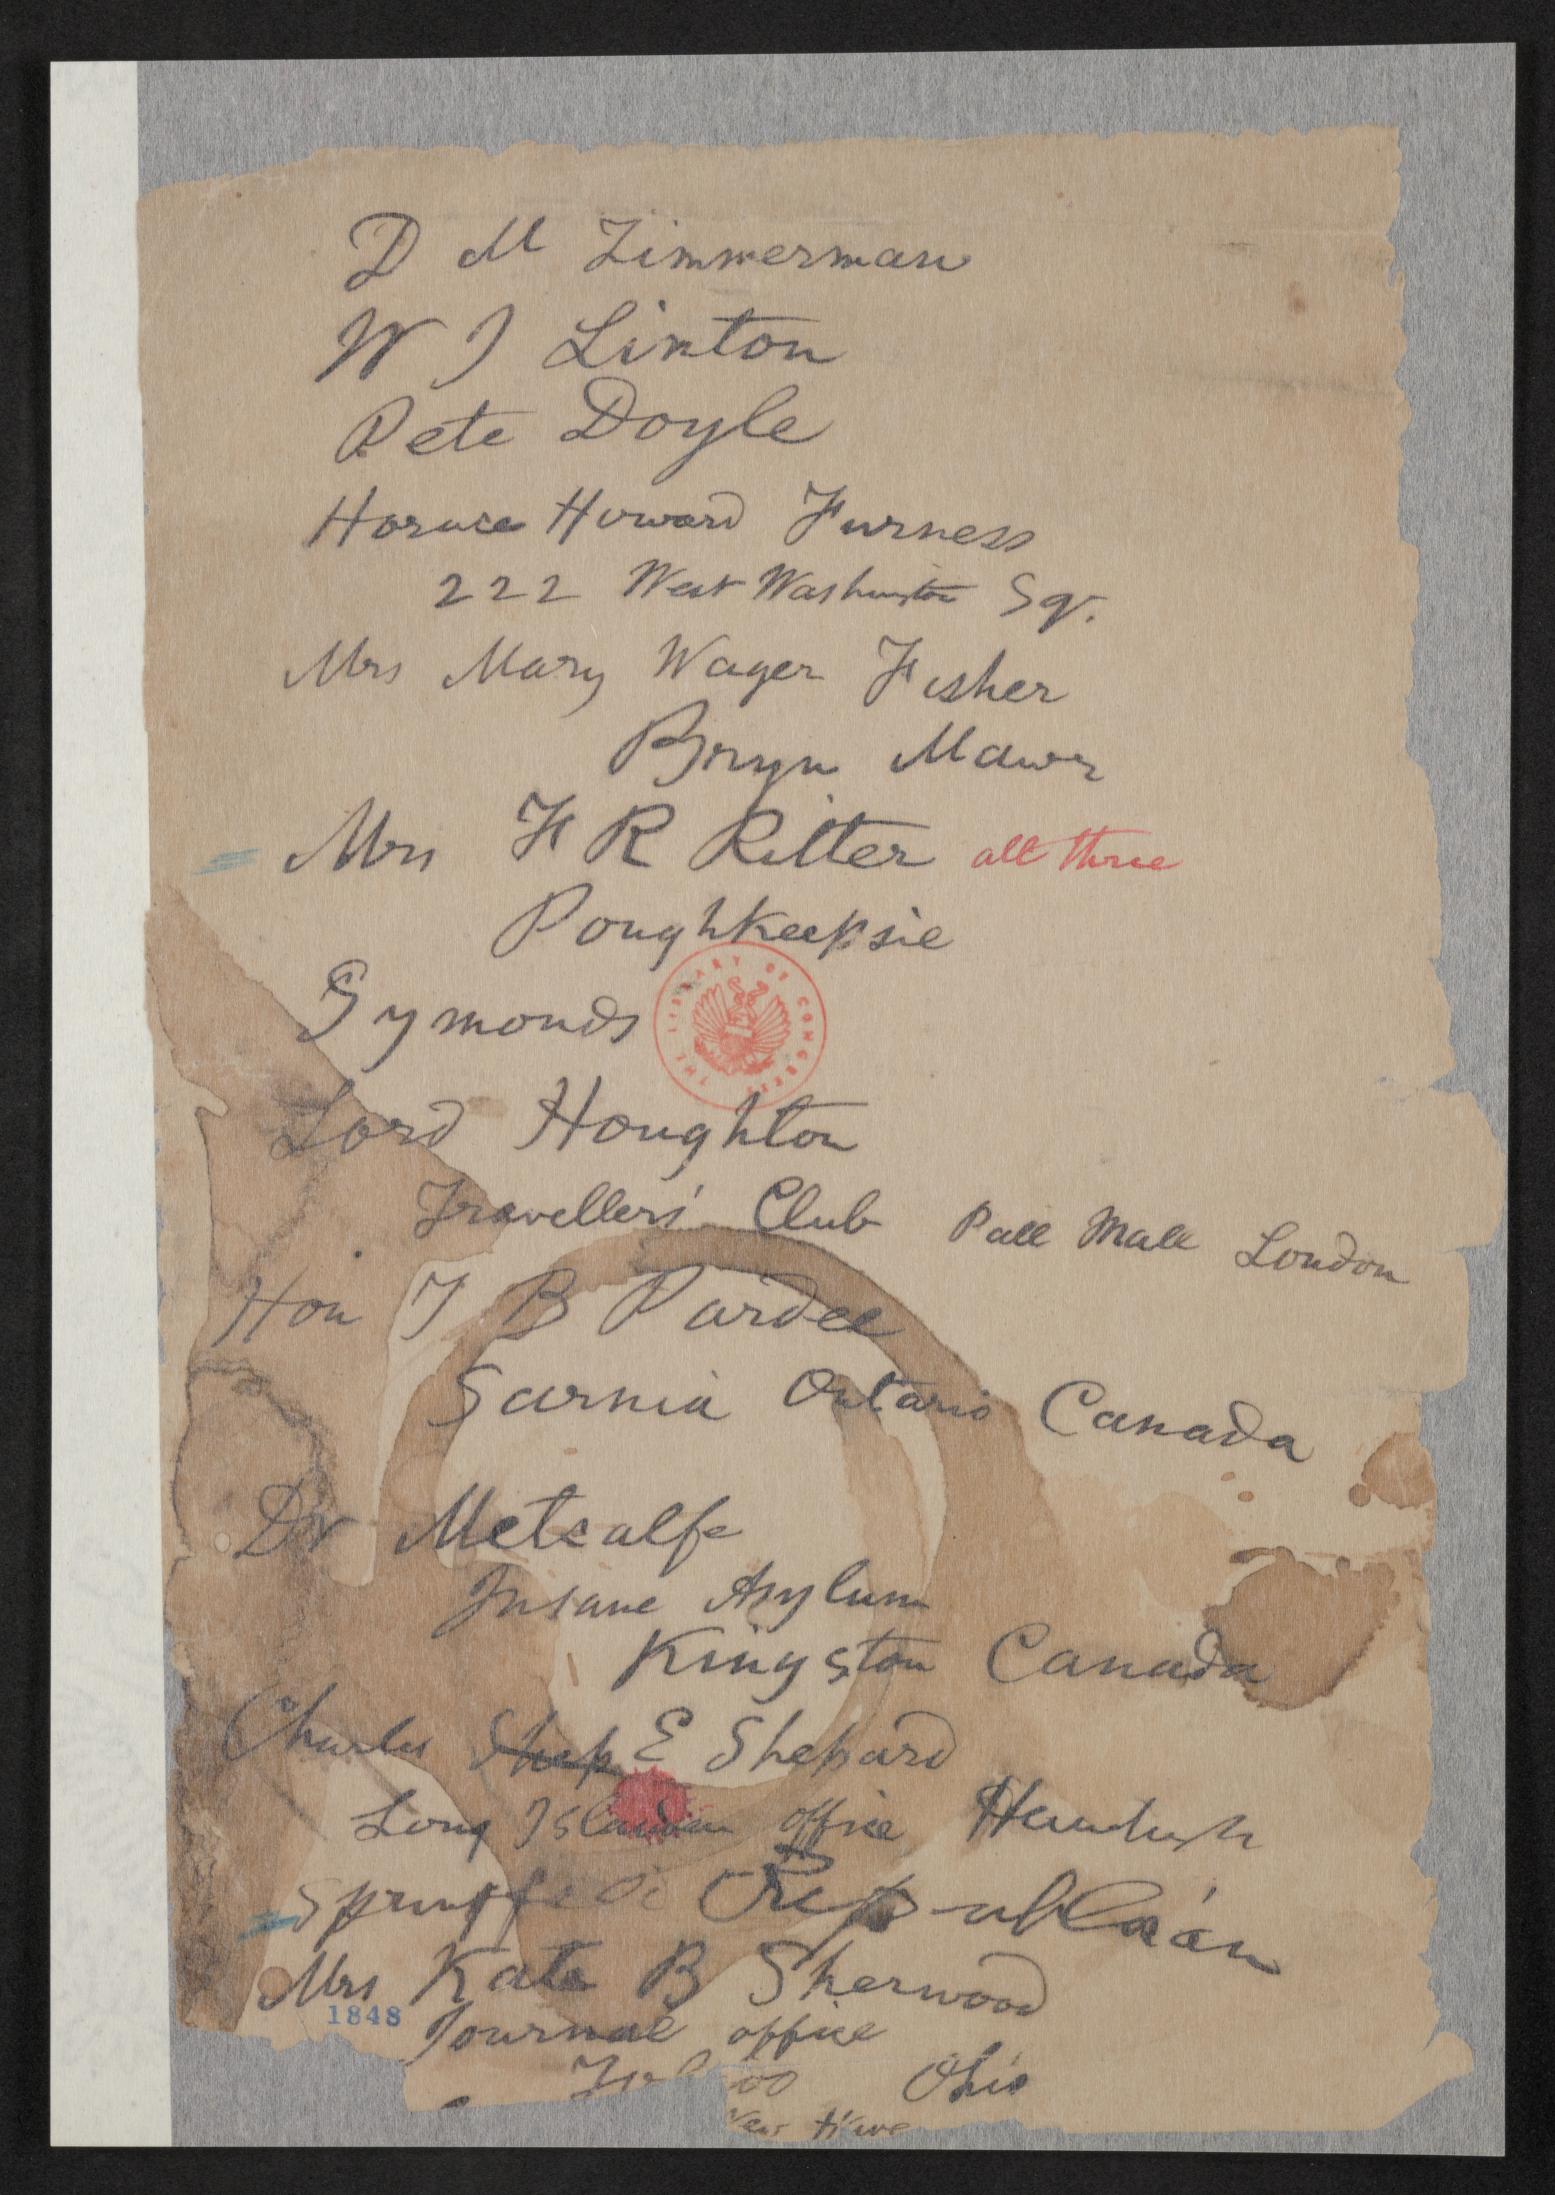 D M Zimmerman
W J Linton
Pete Doyle
Horace Howard Furness
222 West Washington Sq.
Mrs Mary Wager Fisher
Bryn Mawr
Mrs F R Ritter all three
Poughkeepsie
Symonds
THE LIBRARY OF CONGRESS
Lord Houghton
Travellers' Club Pall Mall London
Hon T B Pardee
Sarnia Ontario Canada
Dr Metcalfe
Insane Asylum
Kingston Canada
Charles Shep E Shepard
Long Islander office
Springfield Republican
Mrs Kate B Sherwood
1848
Journal office
Toledo Ohio